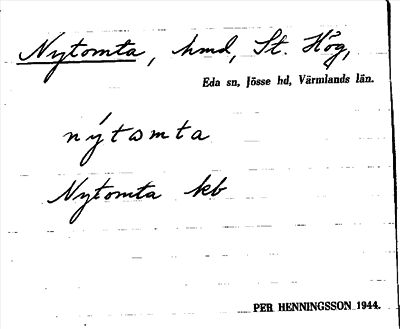 Nytomta, hmd, St. Hög,
Eda sn, Jösse hd, Värmlands län.
nýtɷmta
Nytomta kb
PER HENNINGSSON 1944.